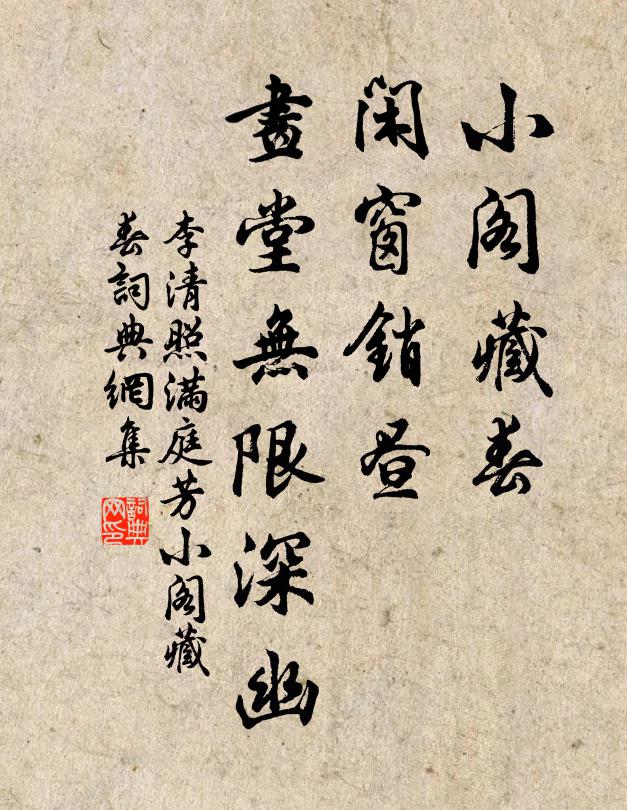 小閣藏春
閑窗銷晝
畫堂無限深幽
李清照滿庭芳小閣藏
春詞典網集
詞典
网印